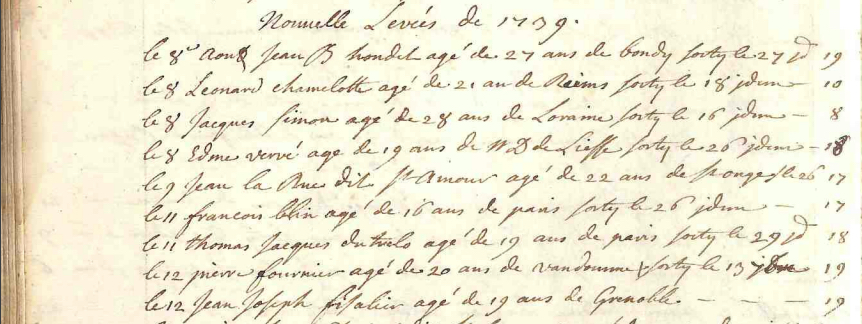 Nouvelle Levées de 1739.
le 8e Aout Jean B hondet agé de 27 ans de bondy sorty le 27 jd 19
le 8 Leonard chamelotte agé de 21 an de Reims sorty le 18 jdem - 10
le 8 Jacques simon agé de 28 ans de Loraine sorty le 16 jdem - 8
le 8 Edme vervé age de 19 ans de N D de Liesse sorty le 26 jdem - 18
le 9 Jean la Rue dit St Amour agé de 22 ans de st onge s le 26 17
le 11 francois blin agé de 16 ans de paris sorty le 26 jdem - 17
le 11 thomas Jacques dutrelo agé de 19 ans de paris sorty le 29 jd 18
le 12 pierre fournier agé de 20 ans de vandomme sorty le 13 19
le 12 Jean Joseph fisalier agé de 19 ans de Grenoble - - - 19